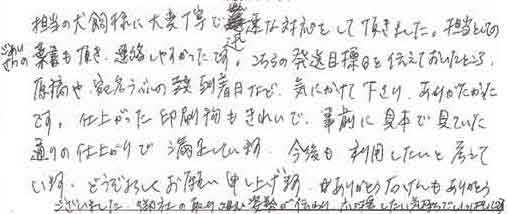 担当の犬飼様に大変丁寧で迅速な対応をして頂きました。担当としての
ごあいさつの葉書も頂き、連絡しやすかったです。こちらの発送目標日を伝えておいたところ、
原稿や宛名うぶの到着日など、気にかけて下さり、ありがたかった
です。仕上がった印刷物もきれいで、事前に見本で見ていた
通りの仕上がりで満足しています。今後も利用したいと考えて
います。どうぞよろしくお願い申し上げます。ありがとう石けんもありがとう
ございました。御社の取り組む姿勢が伝わり